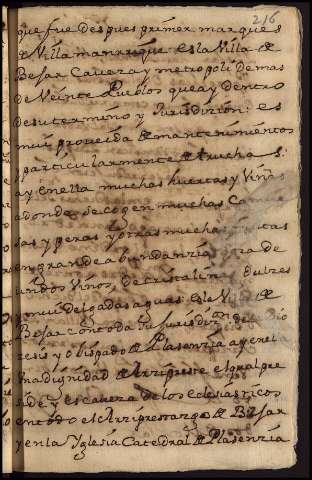 216
que fue despues primer marques
de Villamanrrique es la Villa de
Befar Caveza y metropoli de mas
de Veinte Pueblos que ay dentro
de su termino y Jurisdizion: es
mui proveida de mantenimientos
y particularmente de trucha s:
ay en ella muchas huertas y Viñas
adonde se cogen muchas
sas y peras y otras muchas
en grande abundanzia
vinos, de cristalinas dulzes
y mui delgadas aguas: es la Vª de
Befar con toda su Jurisdizon del Dio
zesis y obispado de Plasenzia ay en el
una dignidad de Arzipreste el qual pre
side y es caveza de los eclesiasticos
en todo el Arziprestazgo de Befar
y en la Yglesia Catedral de Plasenzia